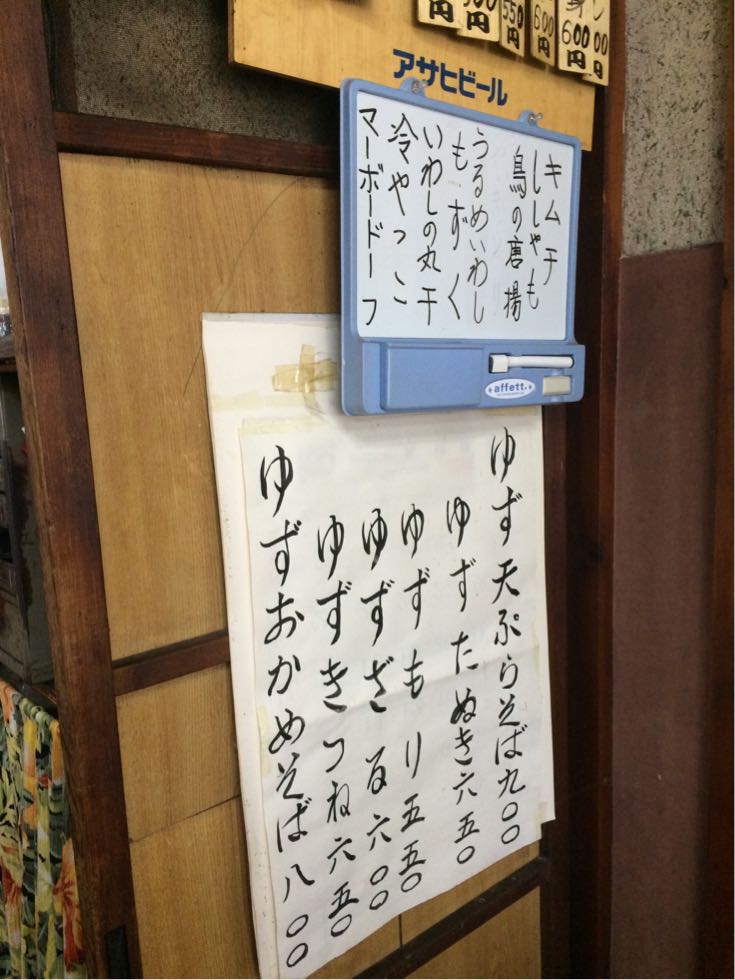 円
00円
550円
600円
600円
00円
アサヒビール
キムチ
ししゃも
鳥の唐揚
うるめいわし
もずく
いわしの丸干
冷やっこ
マーボードーフ
affett.
ゆず天ぷらそば九〇〇
ゆずたぬき六五〇
ゆずもり五五〇
ゆずざる六〇〇
ゆずきつね六五〇
ゆずおかめそば八〇〇